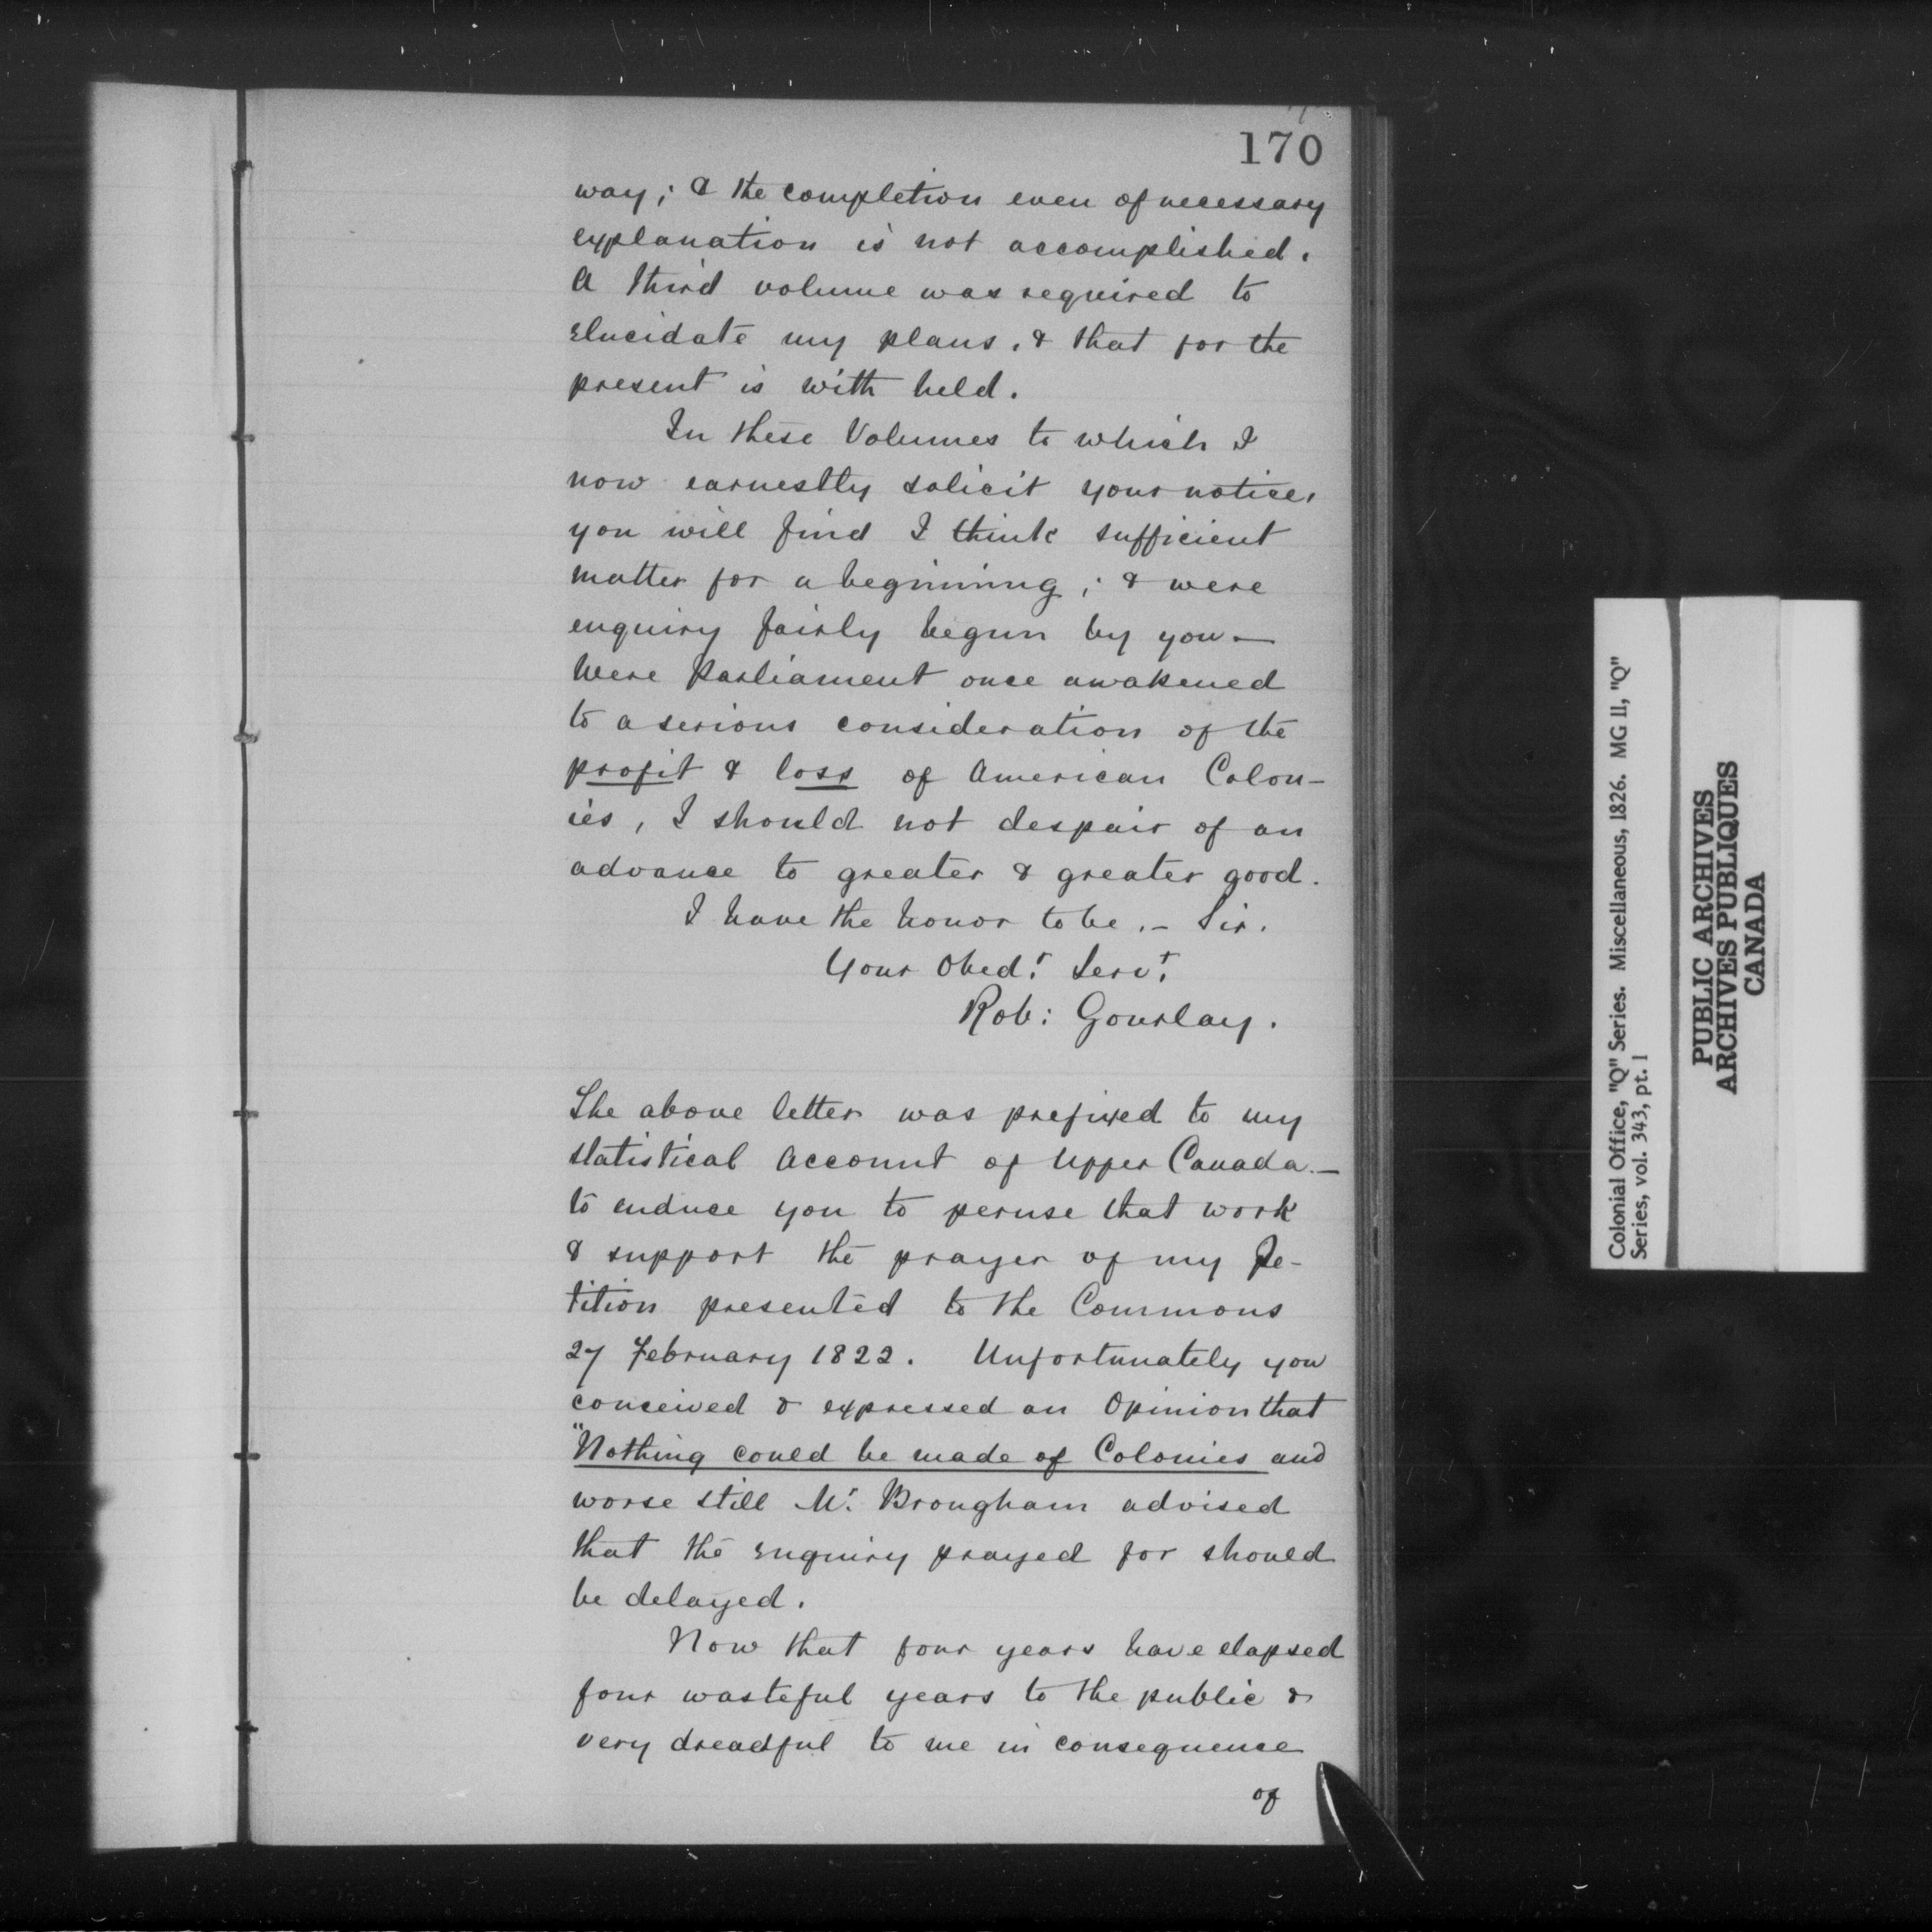 170
way; & the completion even of necessary
explanation is not accomplished.
A third volume was required to
elucidate my plans, & that for the
present is with held.
In these Volumes to which I
now earnestly solicit your notice,
you will find I think sufficient
matter for a beginning; & were
enquiry fairly begun by you —
Were Parliament once awakened
to a serious consideration of the
profit & loss of American Colon-
ies, I should not despair of an
advance to greater & greater good.
I have the honor to be, – Sir,
Your Obedt Servt
Rob: Gourlay.
The above letter was prefixed to my
Statistical Account of Upper Canada —
to enduce you to peruse that work
& support the prayer of my Pe-
tition presented to the Commons
27 February 1822. Unfortunately you
conceived & expressed an Opinion that
"Nothing could be made of Colonies and
worse still Mr Brougham advised
that the enquiry prayed for should
be delayed.
Now that four years have elapsed
four wasteful years to the public &
very dreadful to me in consequence
of
Colonial Office, "Q" Series. Miscellaneous, 1826. MG 11, "Q"
Series, vol. 343, pt. 1
PUBLIC ARCHIVES
ARCHIVES PUBLIQUES
CANADA